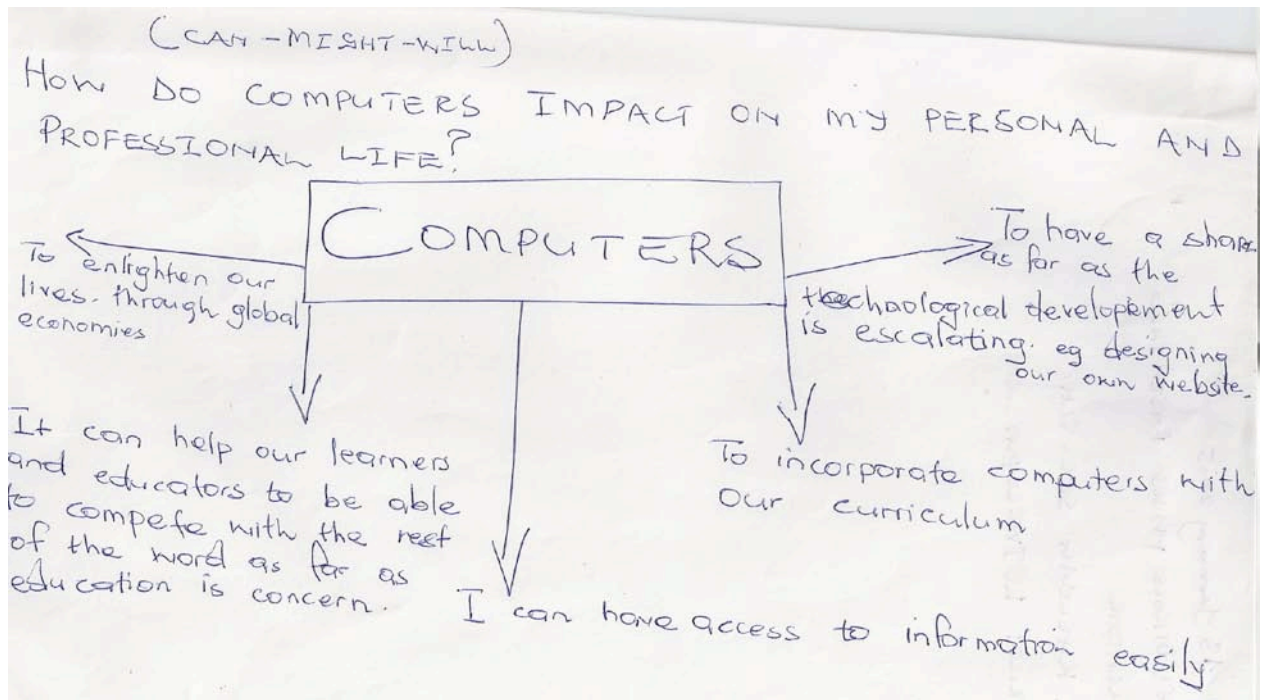 (CAN-MIGHT-WILL)
HOW DO COMPUTERS IMPACT ON MY PERSONAL AND
PROFESSIONAL LIFE?
COMPUTERS
To enlighten our
lives. through global
economies
To have a share
as far as the
techaological developement
is escalating. eg designing
our own website.
It can help our learners
and educators to be able
to compete with the rest
of the word as far as
education is concern.
To incorporate computers with
our curriculum
I can have access to information easily